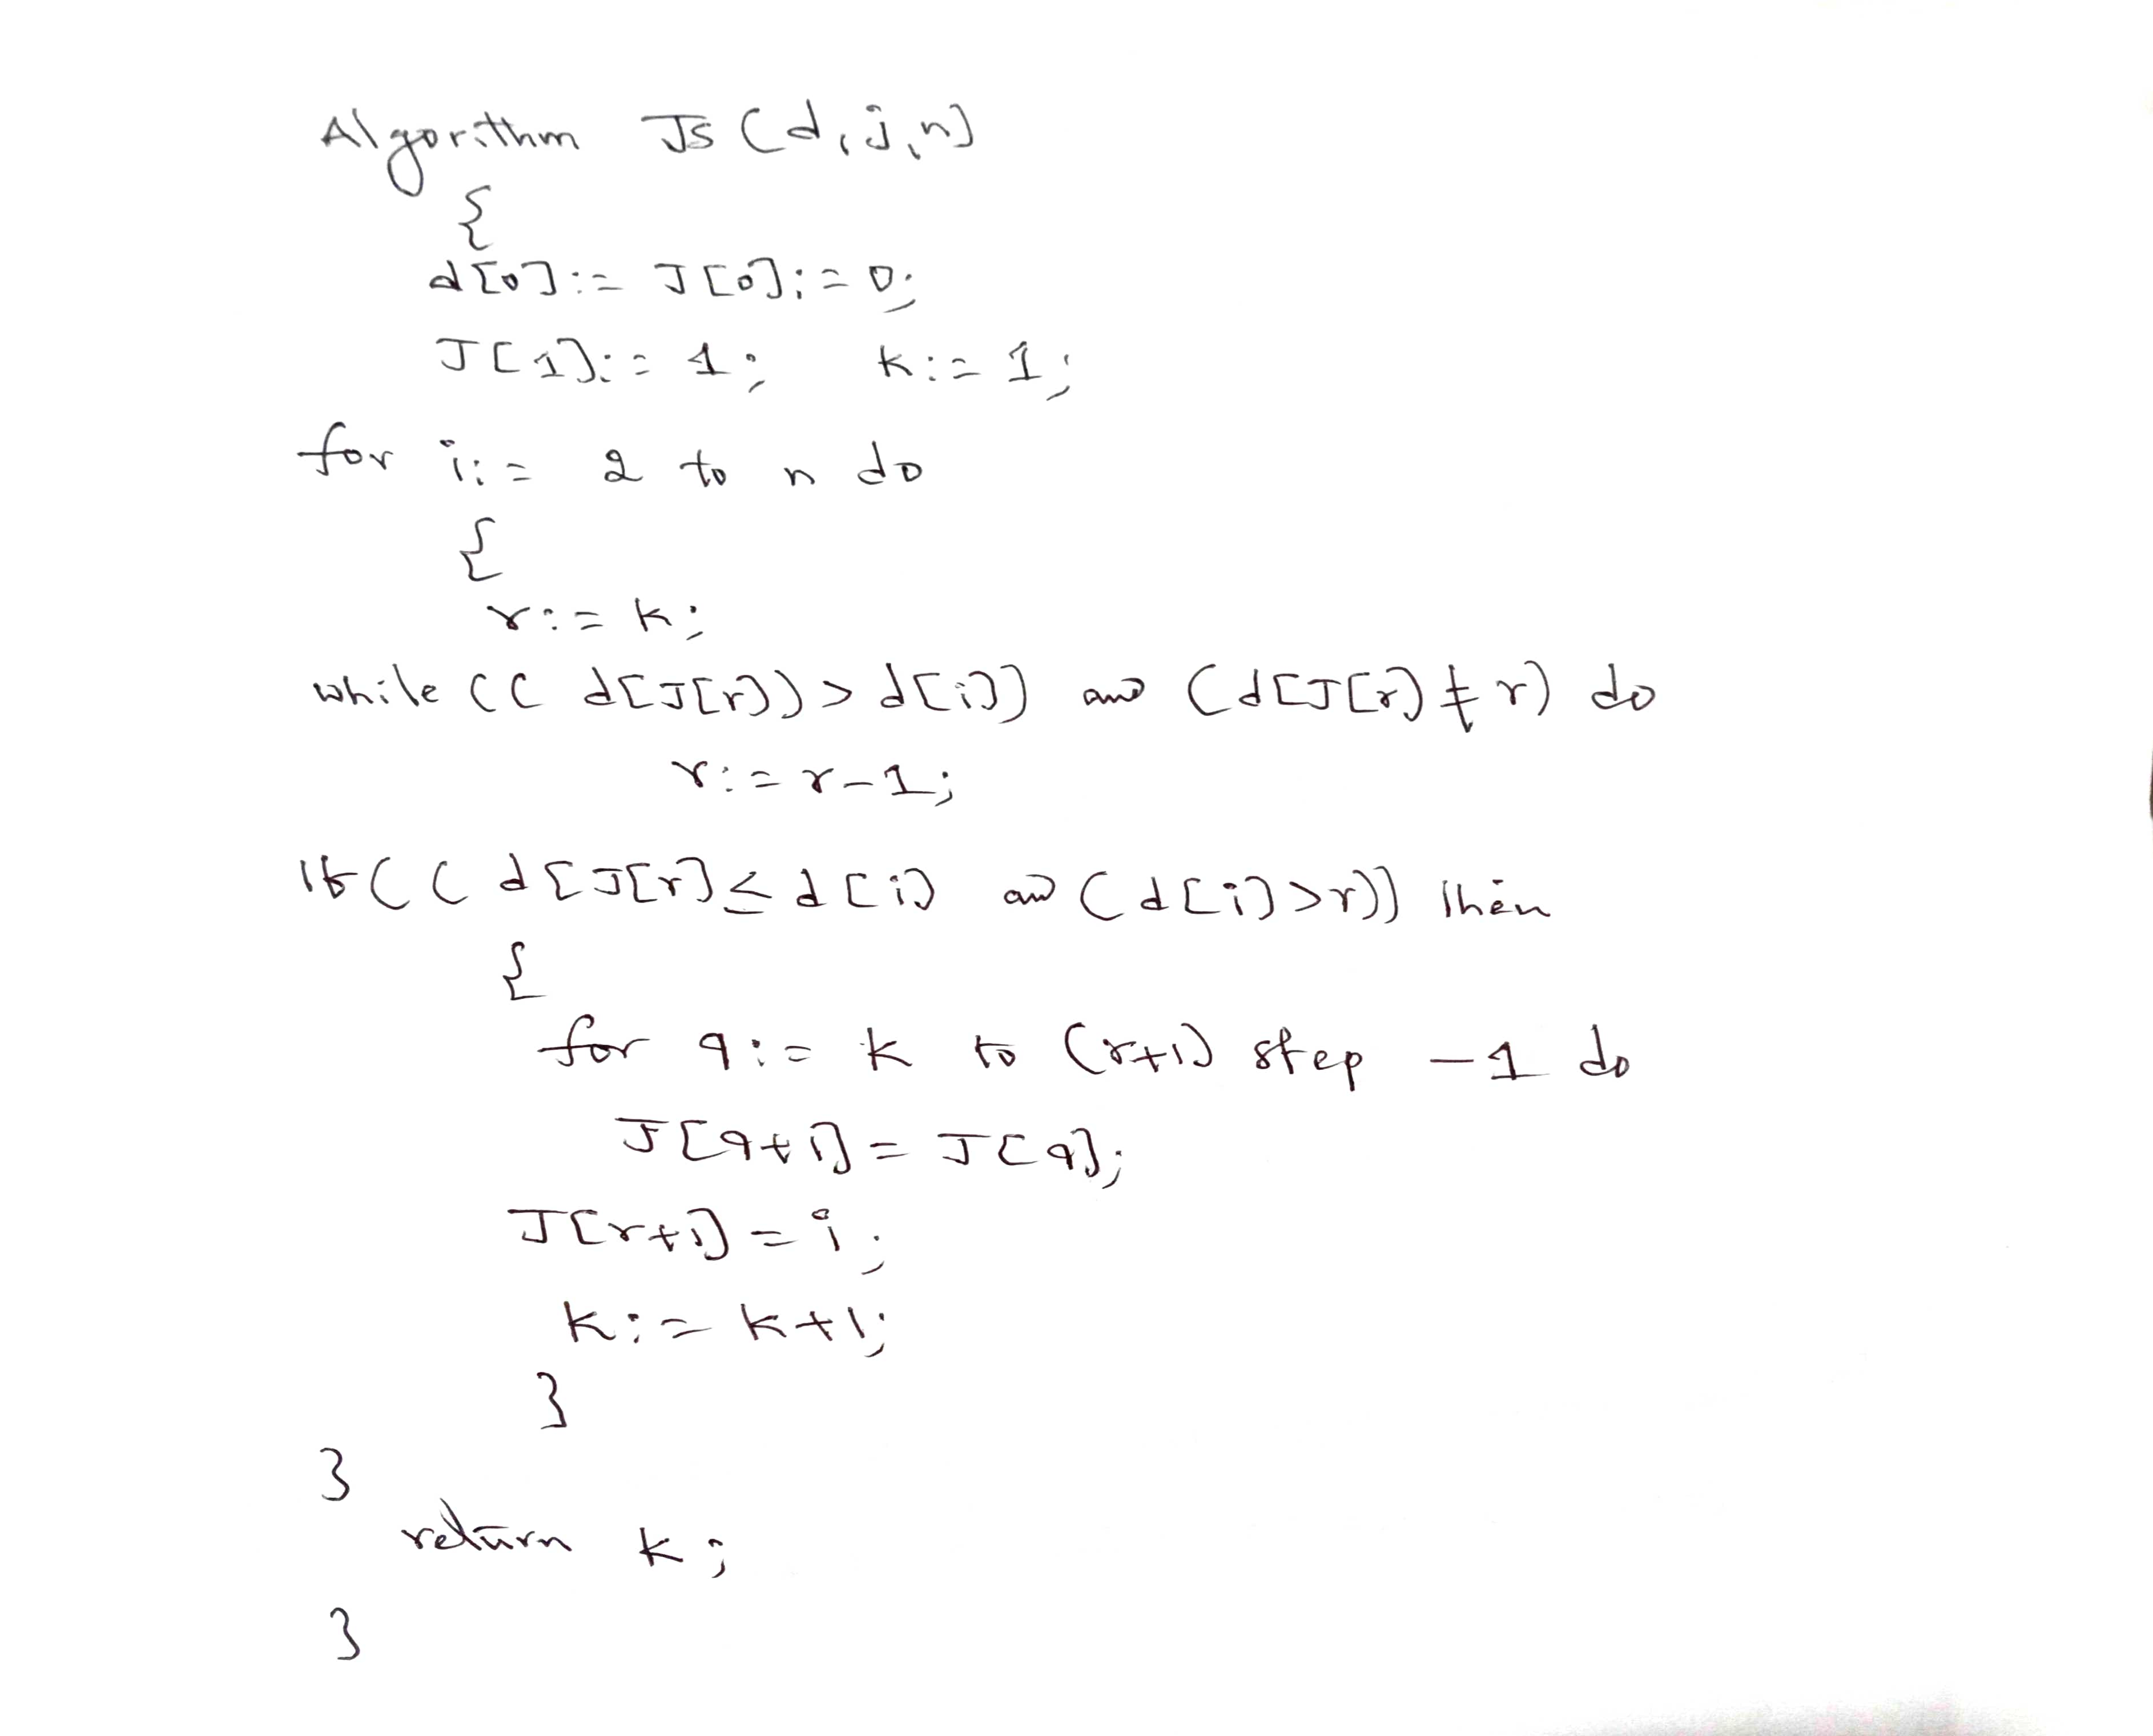 Algorithm JS (d, j, n)
{
d[0] := J[0] := 0;
J[1] := 1; k := 1;
for i := 2 to n do
{
r := k;
while (( d[J[r]) > d[i]) and (d[J[r] ≠ r) do
r := r - 1;
If (( d[J[r] ≤ d[i] and (d[i] > r)) then
{
for q := k to (r+1) step -1 do
J[q+1] = J[q];
J[r+1] = i;
k := k+1;
}
}
return k;
}